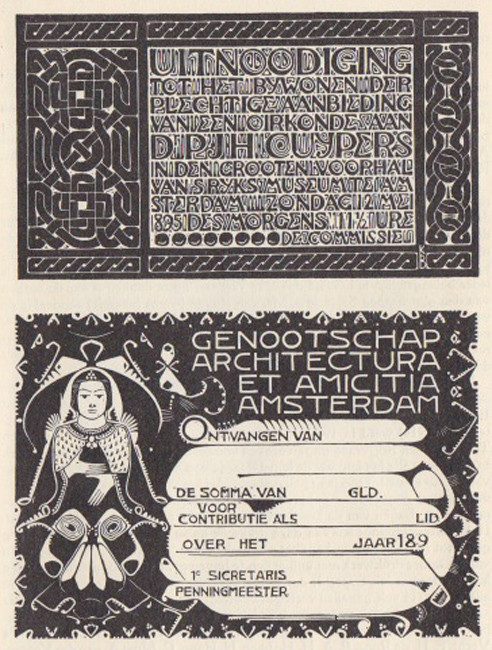 UITNOODIGING
TOT HET BYWONEN DER
PLECHTIGE AANBIEDING
VAN EEN OIRKONDE AAN
DR PJH CUYPERS
IN DEN GROOTEN VOORHAL
VAN S RYKS MUSEUM TE AM
STERDAM ZONDAG 12 MEI
1895 DES MORGENS 11 ½ URE
DE COMMISSIE
GENOOTSCHAP
ARCHITECTURA
ET AMICITIA
AMSTERDAM
ONTVANGEN VAN
DE SOMMA VAN GLD.
VOOR
CONTRIBUTIE ALS LID
OVER HET JAAR 189
1e SICRETARIS
PENNINGMEESTER